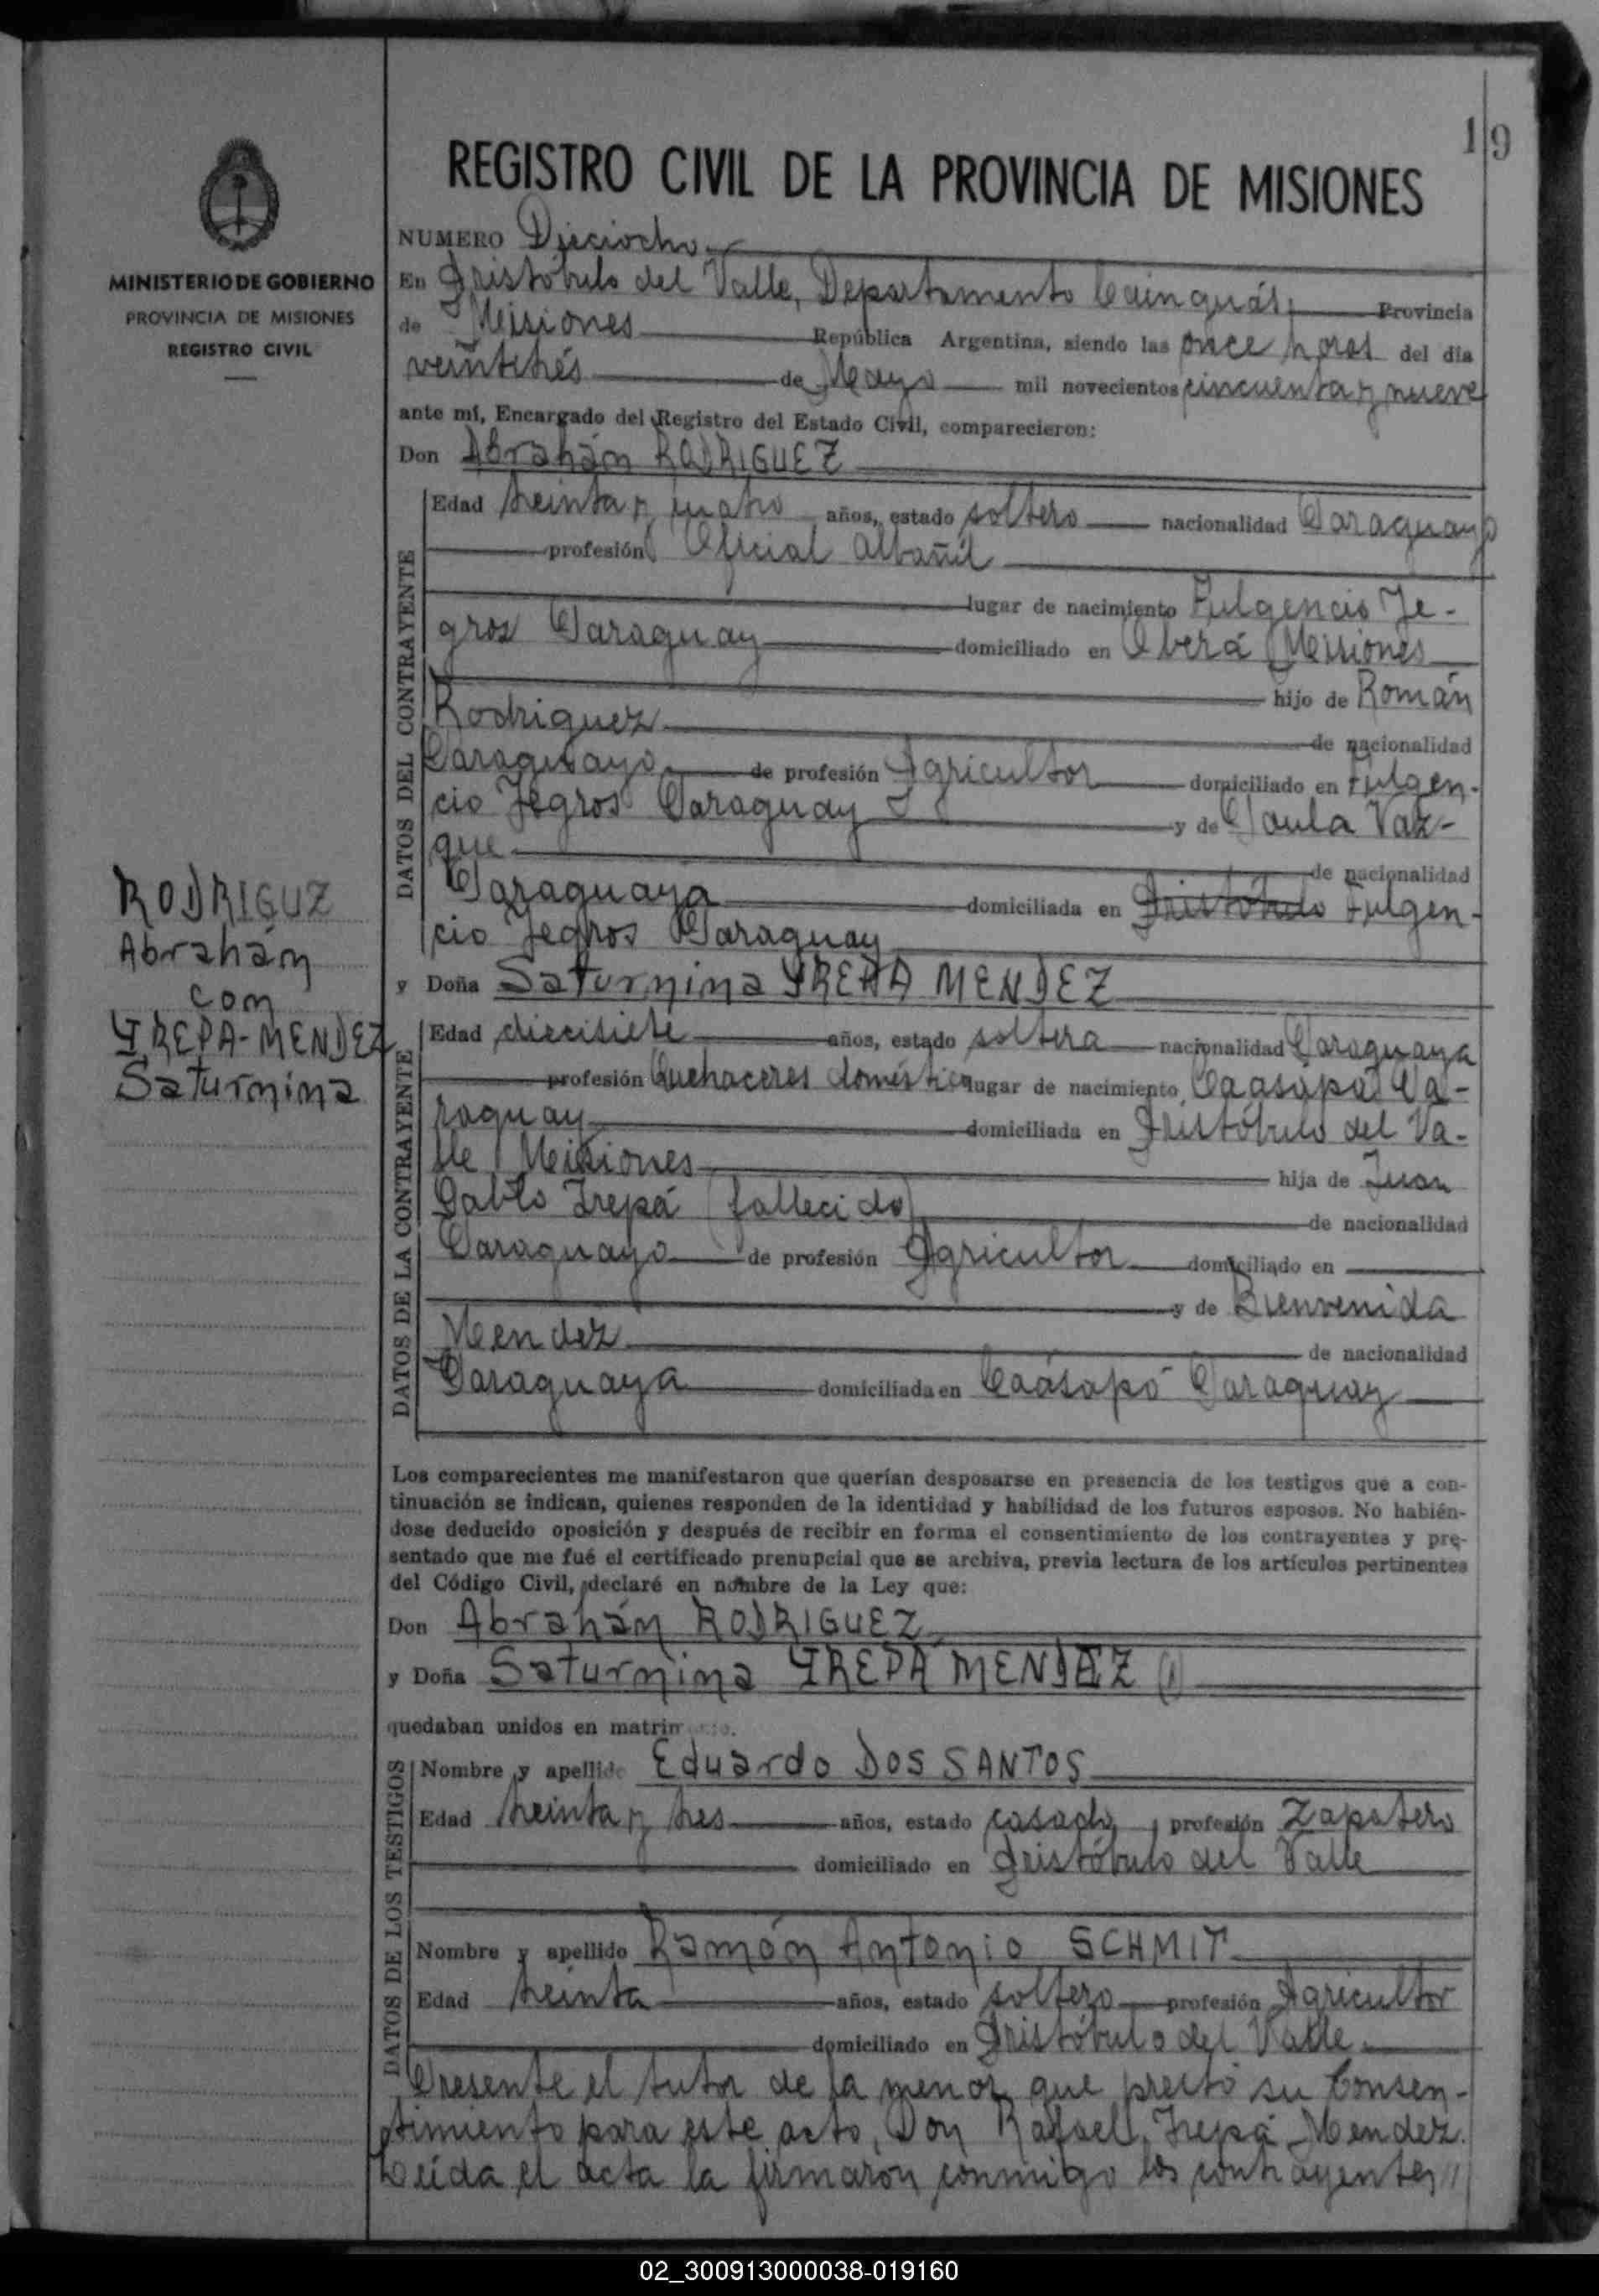 19
REGISTRO CIVIL DE LA PROVINCIA DE MISIONES
MINISTERIO DE GOBIERNO
PROVINCIA DE MISIONES
REGISTRO CIVIL
NUMERO Dieciocho
En Aristóbulo del Valle, Departamento Cainguás, Provincia
de Misiones República Argentina, siendo las once horas del día
veintitrés de Mayo mil novecientos cincuenta y nueve
ante mí, Encargado del Registro del Estado Civil, comparecieron:
Don Abrahán RODRIGUEZ
DATOS DEL CONTRAYENTE
Edad treinta y cuatro años, estado soltero nacionalidad Paraguayo
profesión Oficial Albañil
lugar de nacimiento Fulgencio Ye-
gros Paraguay domiciliado en Oberá Misiones
hijo de Román
Rodriguez de nacionalidad
Paraguayo de profesión Agricultor domiciliado en Fulgen-
cio Yegros Paraguay y de Paula Vaz-
que de nacionalidad
Paraguaya domiciliada en Aristóbulo Fulgen-
cio Yegros Paraguay
y Doña Saturnina YREPA MENDEZ
RODRIGUZ
Abrahán
con
YREPA-MENDEZ
Saturnina
DATOS DE LA CONTRAYENTE
Edad diecisiete años, estado soltera nacionalidad Paraguaya
profesión Quehaceres domésticos lugar de nacimiento Caasapá Pa-
raguay domiciliada en Aristóbulo del Va-
lle Misiones hija de Juan
Pablo Irepá (fallecido) de nacionalidad
Paraguayo de profesión Agricultor domiciliado en
y de Bienvenida
Mendez de nacionalidad
Paraguaya domiciliada en Caásapó Paraguay
Los comparecientes me manifestaron que querían desposarse en presencia de los testigos que a con-
tinuación se indican, quienes responden de la identidad y habilidad de los futuros esposos. No habién-
dose deducido oposición y después de recibir en forma el consentimiento de los contrayentes y pre-
sentado que me fué el certificado prenupcial que se archiva, previa lectura de los artículos pertinentes
del Código Civil, declaré en nombre de la Ley que:
Don Abrahán RODRIGUEZ
y Doña Saturnina YREPÁ MENDEZ (1)
quedaban unidos en matrimonio.
DATOS DE LOS TESTIGOS
Nombre y apellido Eduardo DOS SANTOS
Edad treinta y tres años, estado casado, profesión Zapatero
domiciliado en Aristóbulo del Valle
Nombre y apellido Ramón Antonio SCHMIT
Edad treinta años, estado soltero profesión Agricultor
domiciliado en Aristóbulo del Valle
Presente el tutor de la menor que prestó su Consen-
timiento para este acto, Don Rafael Irepá Mendez.
Leída el acta la firmaron conmigo los contrayentes //
02_300913000038-019160